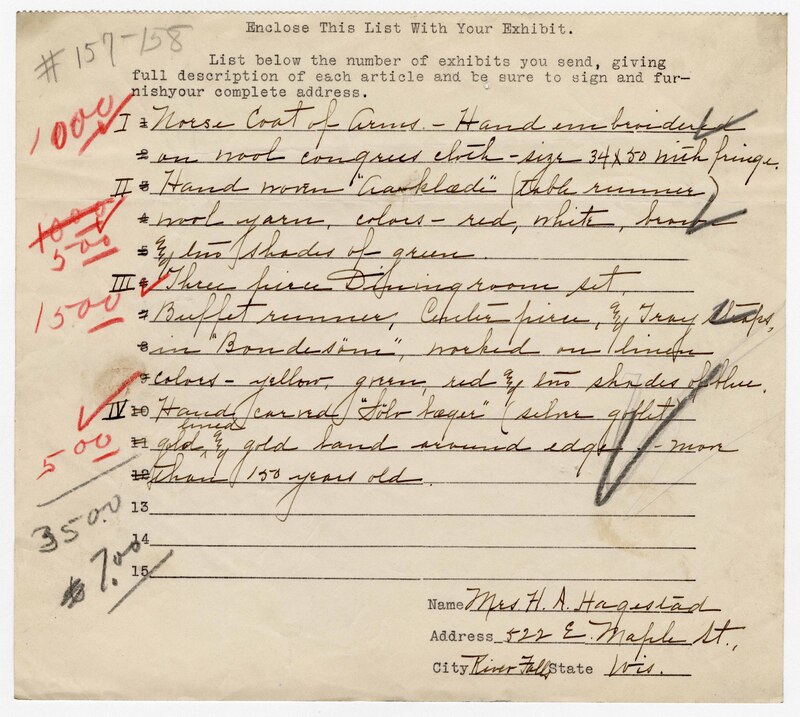 # 157-158
Enclose This List With Your Exhibit.
List below the number of exhibits you send, giving
full description of each article and be sure to sign and fur-
nishyour complete address.
1000
I 1 Norse Coat of Arms. - Hand embroidered
2 on wool congress cloth - size 34 X 50 with fringe.
II 3 Hand woven "Aaklæde" (table runner)
1000
4 wool yarn, colors - red, white, brown
500
5 & two shades of green.
III 6 Three piece Diningroom set.
1500
7 Buffet runner, Center piece, & Tray
8 in "Bondesöm", worked on linen
9 colors - yellow, green, red & two shades of blue.
IV 10 Hand carved "Sölv bæger" (silver goblet)
500
lined
11 gold, & gold band around edge. - more
12 than 150 years old.
13
3500
14
$7.00
15
Name Mrs. H. A. Hagestad
Address 522 E. Maple St.,
City River Falls State Wis.